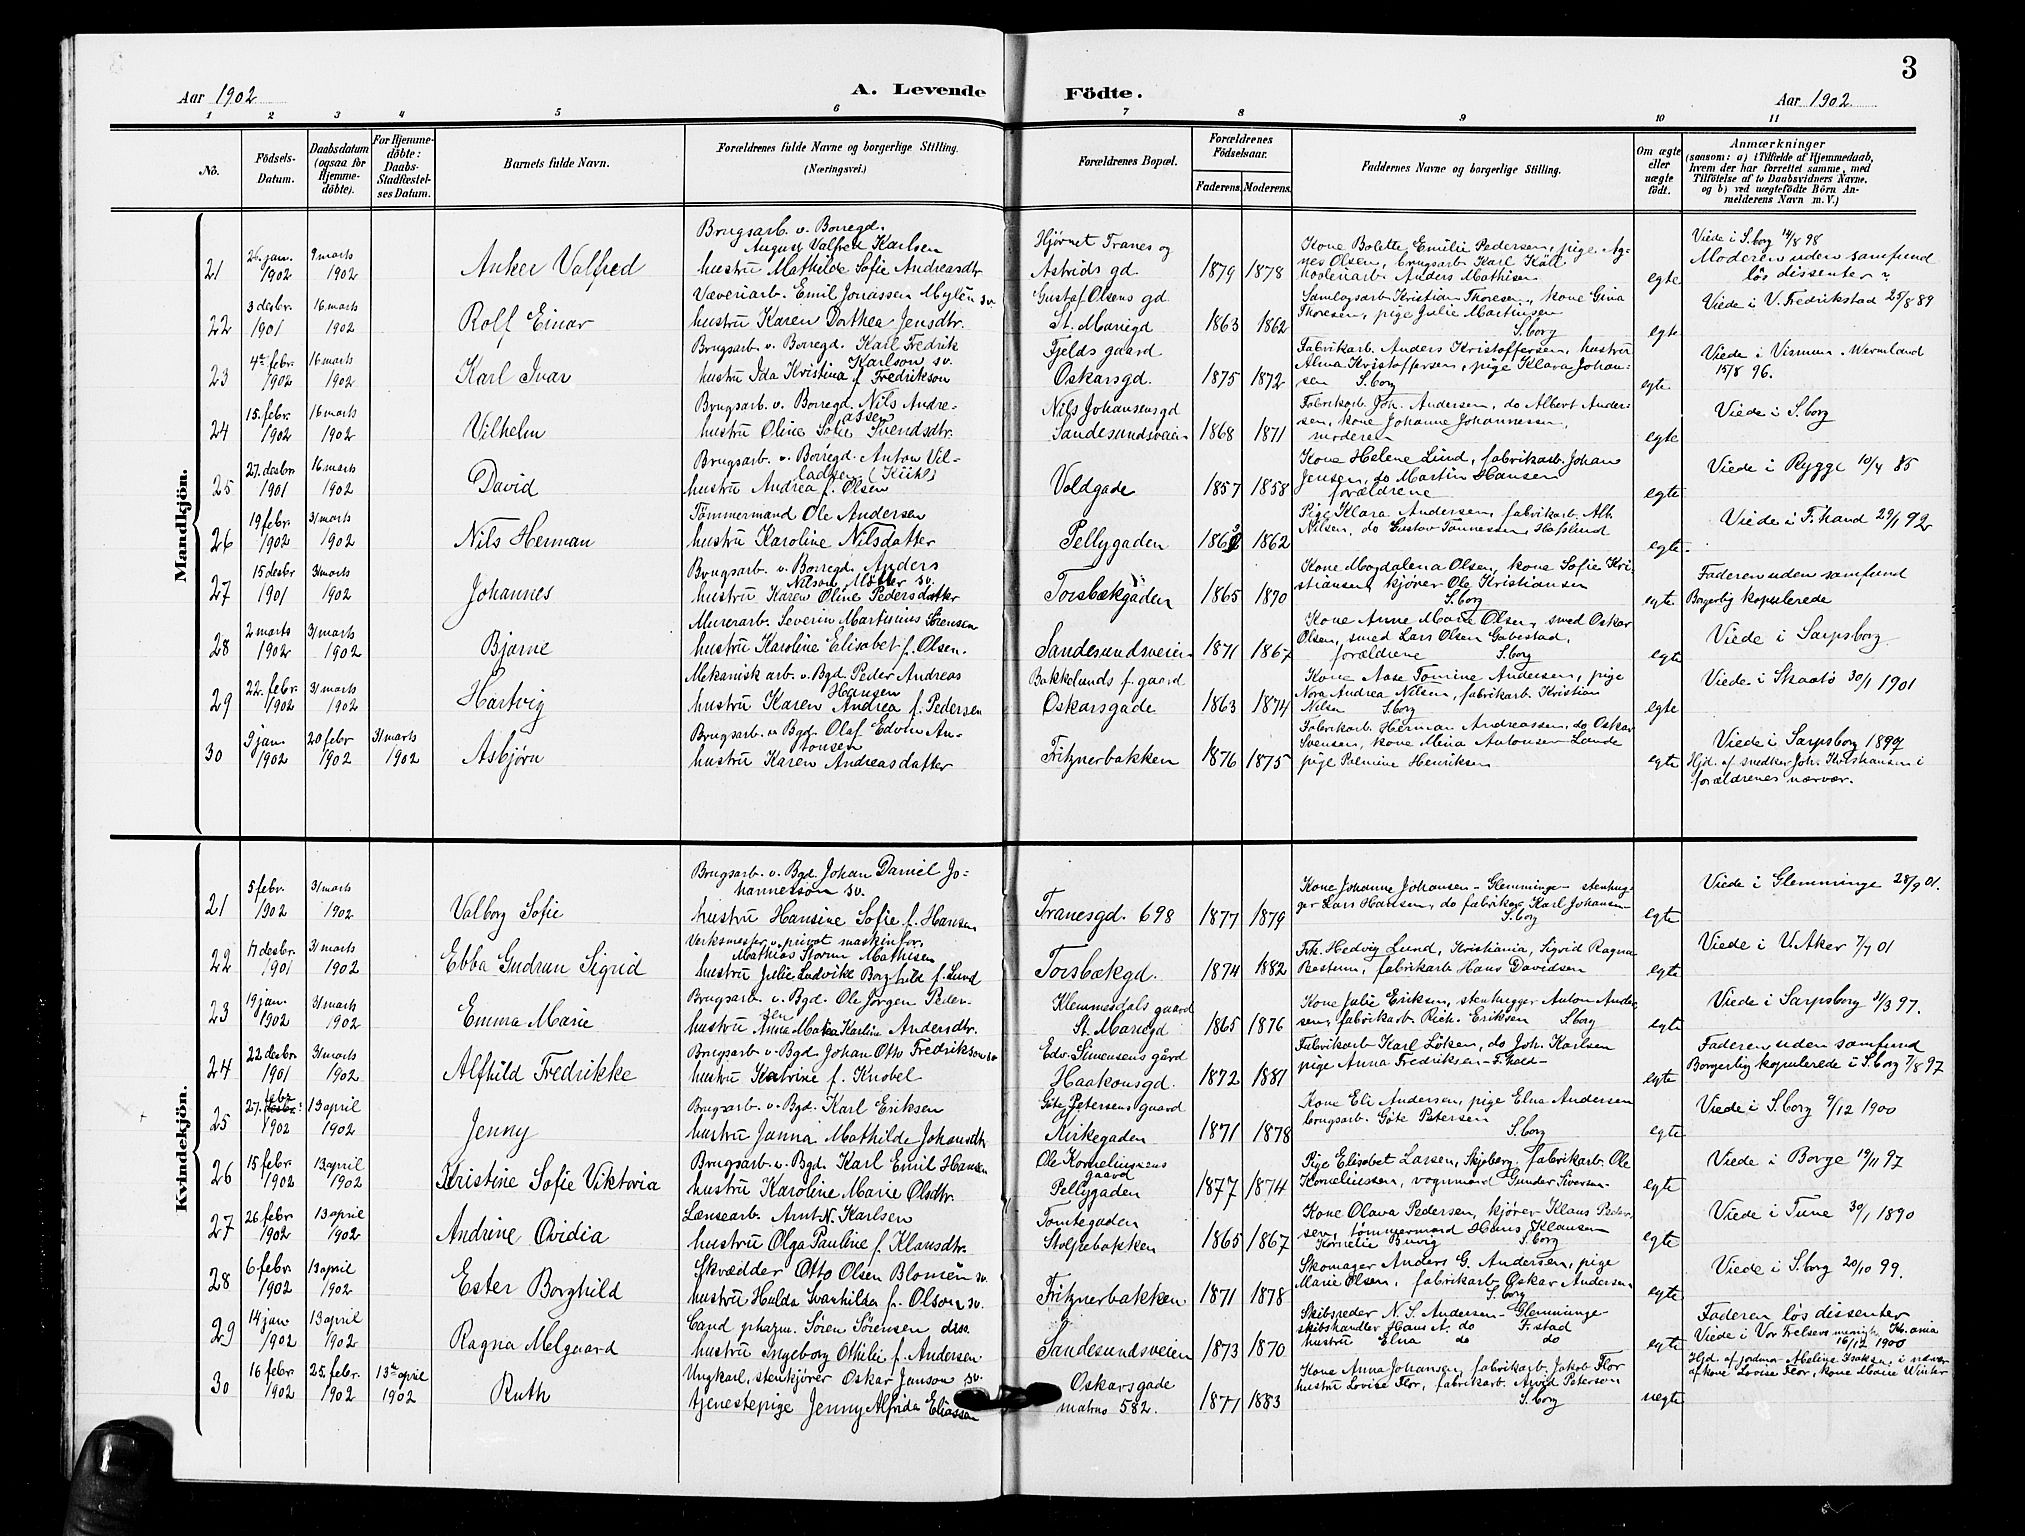 3
Aar 1902
A. Levende
Födte.
Aar 1902
1 2 3 4 5 6 7 8 9 10 11
No.
Födsels-
Datum.
Daabsdatum
(ogsaa for
Hjemme-
döbte).
For Hjemme-
döbte:
Daabs-
Stadfæstel-
ses Datum.
Barnets fulde Navn.
Forældrenes fulde Navne og borgerlige Stilling.
(Næringsvei.)
Forældrenes Bopæl.
Forældrenes
Födselsaar.
Faderens. Moderens.
Faddernes Navne og borgerlige Stilling.
Om ægte
eller
uægte
födt.
Anmærkninger
(saasom: a) i Tilfælde af Hjemmedaab,
hvem der har forrettet samme, med
Tilföielse af to Daabsvidners Navne.
og b) ved uægtefödte Börn An-
melderens Navn m. V.)
Mandkjön.
21 26. jan. 1902 9 marts 1902 Anker Valfred
Brugsarb. v. Borregd.
August Valfred Karlsen
hustru Mathilde Sofie Andreasdtr
Hjörnet Tranes og
Astrids gd. 1879 1878
Kone Bolette Emilie Pedersen, pige Ag-
nes Olsen, brugsarb. Karl Käll
Anders Mathisen egte
Viede i S.borg 14/8 98
Moderen uden samfund
lös dissenter?
22 3 desbr. 1901 16 marts 1902 Rolf Einar
Væveriarb. Emil Jonassen Mylén sv.
hustru Karen Dorthea Jensdtr.
Gustaf Olsens gd.
St. Mariegd 1863 1862
Kristian Thoresen, kone Gina
Thoresen, pige Julie Martinsen
S.borg egte
Viede i V. Fredrikstad 25/8 89
23 4de febr. 1902 16 marts 1902 Karl Ivar
Brugsarb. v. Borregd. Karl Fredrik
Karlson sv.
hustru Ida Kristina f. Fredrikson
Fjelds gaard
Oskarsgd. 1875 1872
Fabrikarb. Anders Kristoffersen, hustru
Alma Kristoffersen, pige Klara Johan-
sen S.borg egte
Viede i Visnum Wermland
15/8 96.
24 15. febr. 1902 16 marts 1902 Vilhelm
Brugsarb. v. Borregd. Nils Andre-
assen
hustru Oline Sofie Svendsdtr.
Nils Johansensgd
Sandesundsveien 1868 1871
Fabrikarb. Joh. Andersen, do Albert Ander-
sen, kone Johanne Johannessen,
moderen egte
Viede i S.borg
25 27. desbr 1901 16 marts 1902 David
Brugsarb. v. Borregd. Anton Vil-
ladsen (Kühl)
hustru Andrea f. Olsen
Voldgade 1857 1858
Kone Helene Lund, fabrikarb. Johan
Jensen, do Martin Hansen
forældrene egte
Viede i Rygge 10/4 85
26 19 febr. 1902 31 marts 1902 Nils Herman
Tömmermand Ole Andersen
hustru Karoline Nilsdatter
Pellygaden 1862
Pige Klara Andersen, fabrikarb. Alb.
Nilsen, do Gustav Tønnesen, Hafslund
egte.
Viede i F.hald 29/1 92
27 15 desbr 1901 31 marts 1902 Johannes
Brugsarb. v. Borregd. Anders
Nilson Möller sv.
hustru Karen Oline Pedersdatter
Torsbækgaden 1865 1870
Kone Magdalena Olsen, kone Sofie Kri-
stiansen, kjörer Ole Kristiansen
S.borg egte
Faderen uden samfund
Borgerlig kopulerede
28 2 marts 1902 31 marts 1902 Bjarne
Murerarb. Severin Martinius Sörensen
hustru Karoline Elisabet f. Olsen.
Sandesundsveien 1871 1867
Kone Anne Marie Olsen, smed Oskar
Olsen, smed Lars Olsen Gabestad,
forældrene S.borg egte
Viede i Sarpsborg
29 22. febr. 1902 31 marts 1902 Hartvig
Mekanisk arb. v. Bgd. Peder Andreas
Hansen
hustru Karen Andrea f. Pedersen
Bakkelunds f. gaard
Oskarsgade 1863 1874
Kone Aase Tomine Andersen, pige
Nora Andrea Nilsen, fabrikarb. Kristian
Nilsen S.borg egte
Viede i Skaatö 30/1 1901
30 9 jan. 1902 20 febr 1902 31 marts 1902 Asbjørn
Brugsarb. v. Bgd. Olaf Edvin An-
tonsen
hustru Karen Andreasdatter
Fritznerbakken 1876 1875
Fabrikarb. Herman Andreassen, do Oskar
Svensen, kone Mina Antonsen Lunde
pige Palmine Henriksen egte
Viede i Sarpsborg 1897
Hjd. af snedker Joh. Kristiansen i
forældrenes nærvær.
Kvindekjön.
21 5 febr. 1902 31 marts 1902 Valborg Sofie
Brugsarb. v. Bgd. Johan Daniel Jo-
hannesson sv.
hustru Hansine Sofie f. Hansen
Tranesgd. 698 1877 1879
Kone Johanne Johansen - Glemminge - stenhug-
ger Lars Hansen, do fabrikør Karl Johansen
S.borg egte
Viede i Glemminge 28/9 01.
22 17 desbr. 1901 31 marts 1902 Ebba Gudrun Sigrid
Verksmester v. privat maskinfor.
Mathias Storm Mathisen
hustru Julie Ludvike Borghild f. Lund
Torsbækgd. 1874 1882
Frk. Hedvig Lund, Kristiania, Sigrid Ragna
Restum, fabrikarb Hans Davidsen egte
Viede i V. Aker 7/7 01
23 19 jan. 1902 31 marts 1902 Emma Marie
Brugsarb. v. Bgd. Ole Jörgen Peder-
sen
hustru Anna Karline Andersdtr.
Klemmesdals gaard
St. Mariegd 1865 1876
Kone Julie Eriksen, stenhugger Anton Ander-
sen, fabrikarb. Rich. Eriksen S.borg egte
Viede i Sarpsborg 31/3 97.
24 22 desbr 1901 31 marts 1902 Alfhild Fredrikke
Brugsarb v. Bgd. Johan Otto Fredrikson sv
hustru Katrine f. Knobel
Edv. Simensens gård
Haakonsgd. 1872 1881
Fabrikarb Karl Löken, do Joh. Karlsen
pige Anna Fredriksen - F.hald - egte
Faderen uden samfund
Borgerlig kopulerede i S.borg 7/8 97
25 27. febr 1902 13 april 1902 Jenny
Brugsarb. v. Bgd. Karl Eriksen
hustru Janna Mathilde Johansdtr
Göte Petersens gaard
Kirkegaden 1871 1878
Kone Eli Andersen, pige Elna Andersen
brugsarb. Göte Petersen
S.borg egte
Viede i S.borg 9/12 1900
26 15 febr. 1902 13 april 1902 Kristine Sofie Viktoria
Brugsarb. v. Bgd. Karl Emil Hansen
hustru Karoline Marie Olsdtr.
Ole Korneliussens
gaard
Pellygaden 1877 1874
Pige Elisabet Larsen, Skjeberg, fabrikarb. Ole
Korneliussen, vognmand Gunder Siversen egte
Viede i Borge 19/11 97
27 26 febr. 1902 13 april 1902 Andrine Ovidia
Lænsearb. Arnt N. Karlsen
hustru Olga Pauline f. Klausdtr.
Tomtegaden
Stolpebakken 1865 1867
Kone Olava Pedersen, kjörer Klaus Peder-
sen, tømmermand Hans Klausen
Kornelie Buvig S.borg egte
Viede i Tune 30/1 1890
28 6 febr. 1902 13 april 1902 Ester Borghild
Skrædder Otto Olsen Blomén sv.
hustru Hulda Svanhilda f. Olson sv.
Fritznerbakken 1871 1878
Skomager Anders G. Andersen, pige
Marie Olsen, fabrikarb. Oskar Andersen
S.borg egte
Viede i S.borg 20/10 99.
29 14 jan 1902 13 april 1902 Ragna Melgaard
Cand pharm. Sören Sørensen diss.
hustru Ingeborg Othilie f. Andersen
Sandesundsveien 1873 1870
Skibsreder N. S. Andersen - Glemminge -
skibshandler Hans A. do F.stad
hustru Elna do do egte
Faderen lös dissenter
Viede i Vor Frelsers menigh. Kr.ania
16/12 1900
30 16 febr 1902 25. febr. 1902 13de april 1902 Ruth
Ungkarl, stenkjörer Oskar Janson sv.
tjenestepige Jenny Alfrida Eliasson
Oskarsgade
matrno 582. 1877 1883
Kone Anna Johansen, fabrikarb. Jakob Flor
hustru Lovise Flor, fabrikarb. Arvid Peterson
S.borg uegte
Hjd. af jordmor Abeline Isaksen, i nærvær
af kone Lovise Flor, kone Marie Winter